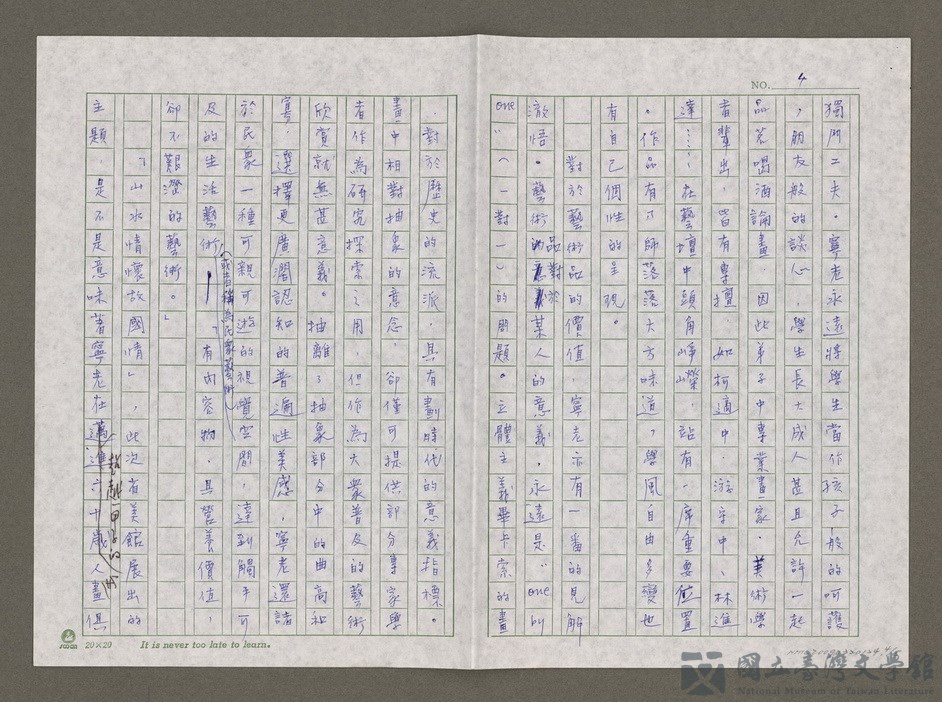 NO. 4
獨門工夫。寧老永遠將學生當作孩子般的呵護
，朋友般的談心，學生長大成人甚且允許一起
品茗喝酒論畫。因此弟子中專業畫家、美術學
者輩出，皆有專擅如柯適中、游守中、林進
達……，在藝壇中頭角崢嶸，站有一席重要位置
。作品有才師落落大方味道，學風自由多變也
有自己個性的呈現。
對於藝術品的價值，寧老亦有一番的見解
澈悟。藝術品對於某人的意義，永遠是"one叫
one"（一對一）的朋題。立體主義畢卡索的畫
，對於歷史的流派，具有劃時代的意義指標。
畫中相對抽象的意念，卻僅可提供部分專家學
者作為研究探索之用，但作為大眾普及的藝術
欣賞就無甚意義。抽離了抽象部分中的曲高和
寡，選擇更廣濶認知的普遍性美感，寧老還諸
於民眾一種可親可遊的視覺空間，達到觸手可
及的生活藝術（或者稱為民眾藝術）—「有內容物，具營養價值，
卻不艱澀的藝術。」
「山水情懷故國情」，此次省美館展出的
主題，是不是意味著寧老在邁進六十歲人畫俱
20×20
It is never too late to learn.
國立臺灣文學館
National Museum of Taiwan Literature